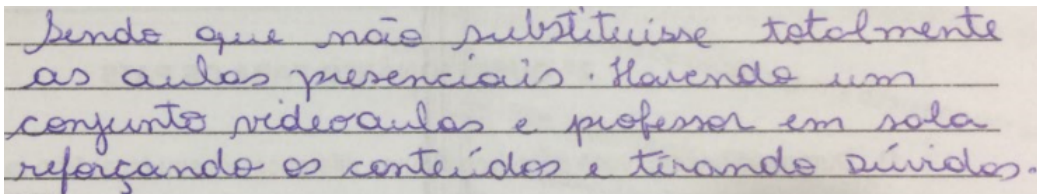 Sendo que não substituisse totalmente
as aulas presenciais. Havendo um
conjunto videoaulas e professor em sala
reforçando os conteúdos e tirando dúvidas.